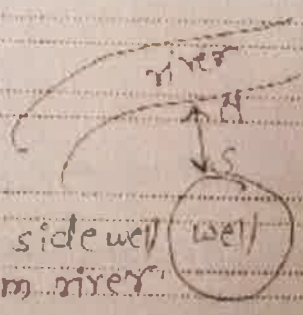 river
S
side well well
m river